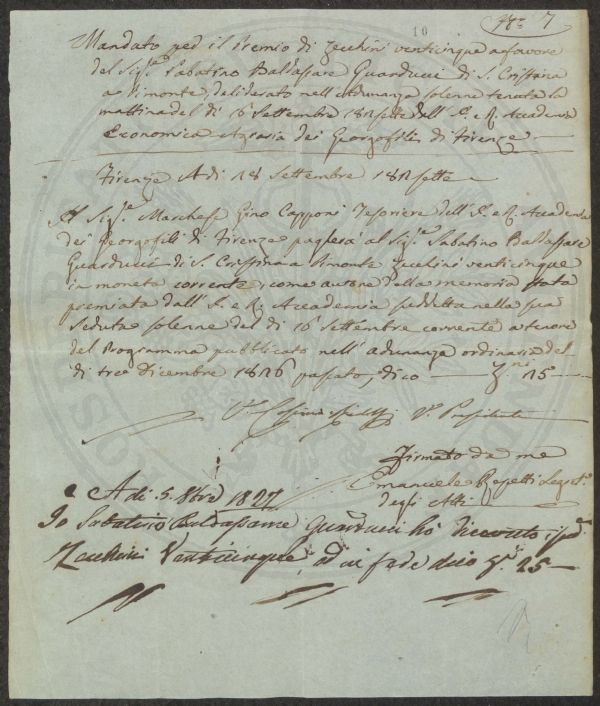 10
N.º 7
Mandato per il Premio di Zecchini venticinque a favore
del Sig.e Sabatino Baldassare Guarducci di S. Cristina
a Pimonte deliberato nell'adunanza solenne tenuta la
mattina del dì 16 Settembre 1827 dell' I. e R. Accademia
Economica Agraria dei Georgofili di Firenze
Firenze A dì 18 Settembre 1827
Il Sig.e Marchese Gino Capponi Tesoriere dell' I. e R. Accademia
dei Georgofili di Firenze pagherà al Sig.e Sabatino Baldassare
Guarducci di S. Cristina a Pimonte Zecchini venticinque
in moneta corrente, come autore della memoria stata
premiata dall' I. e R. Accademia suddetta nella sua
seduta solenne del dì 16 Settembre corrente a tenore
del Programma pubblicato nell' adunanza ordinaria del
dì tre Dicembre 1826 passato, dico 25
V. Cosimo V. Presidente
Firmato da me
Emanuele Repetti Seg.
degli Atti
A dì 5. 8bre 1827
Io Sabatino Baldassarre Guarducci hò ricevuto i
Zecchini Venticinque, ed in fede dico 25